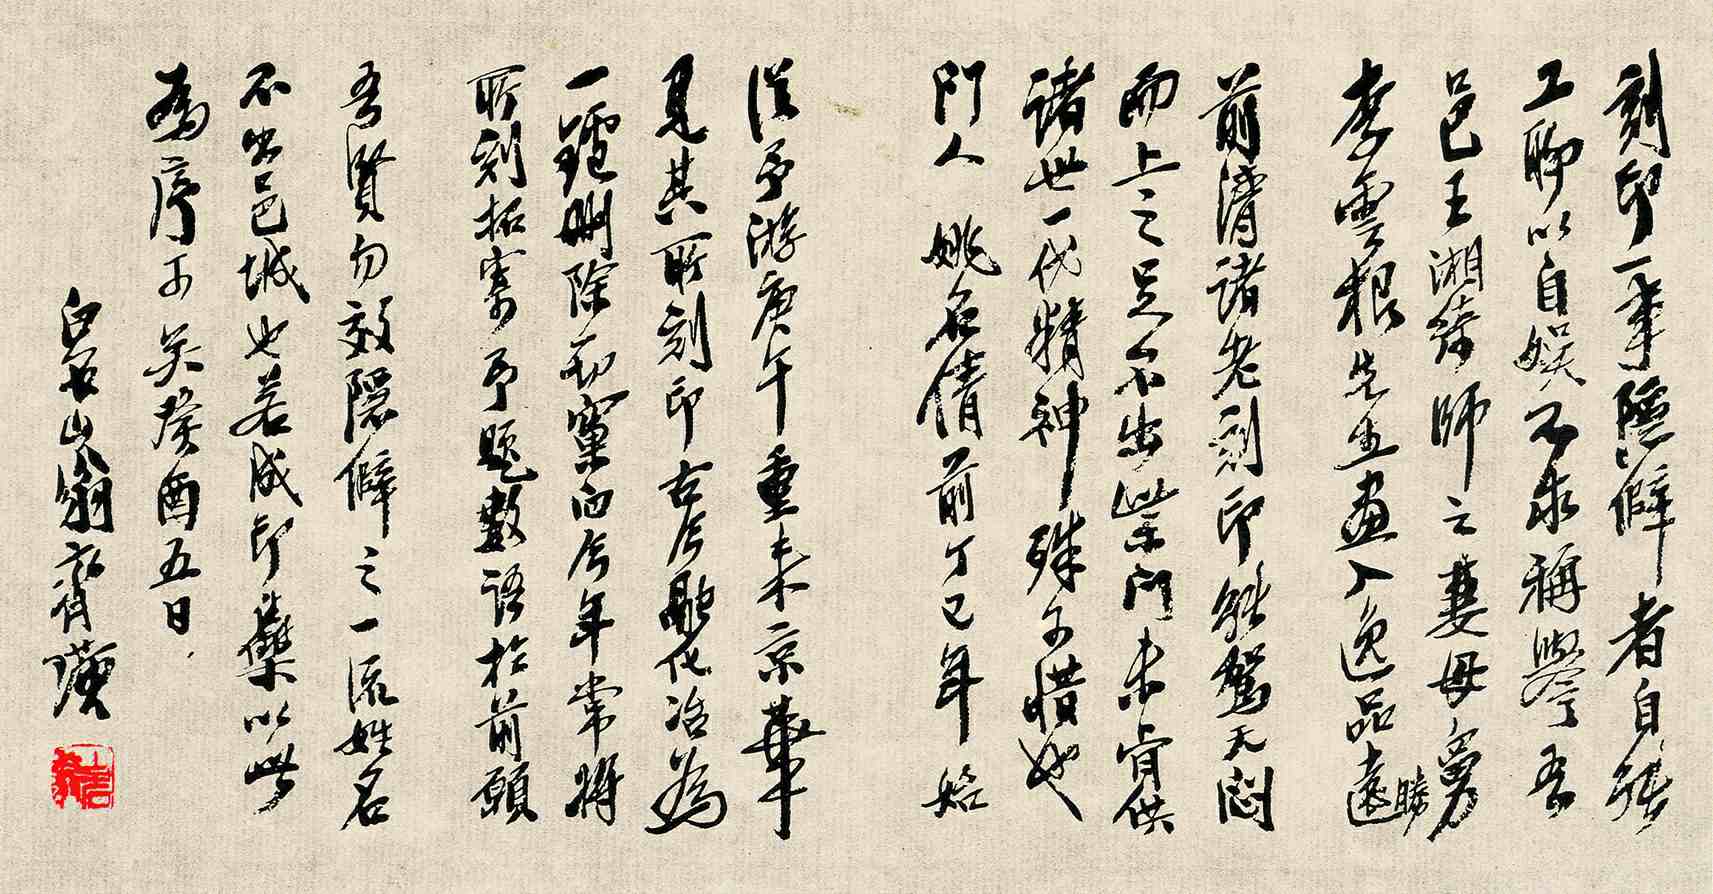 刻印一事隱僻者自能
工聊以自娛不求稱譽吾
邑王湘綺師之妻母舅
李雲根先生畫入逸品遠勝
前清諸老刻印能駕无悶
而上之足不出柴門未肯供
諸世一代精神殊可惜也
門人 姚石倩前丁巳年始
從予游庚午重來京華
見其所刻印古今融化冶為
一鑪刪除一切窠臼今年常將
所刻拓寄予題數語於前願
吾賢勿效隱僻之一流姓名
不出邑城也若成印集以此
為序可矣癸酉五日
白石山翁齊璜